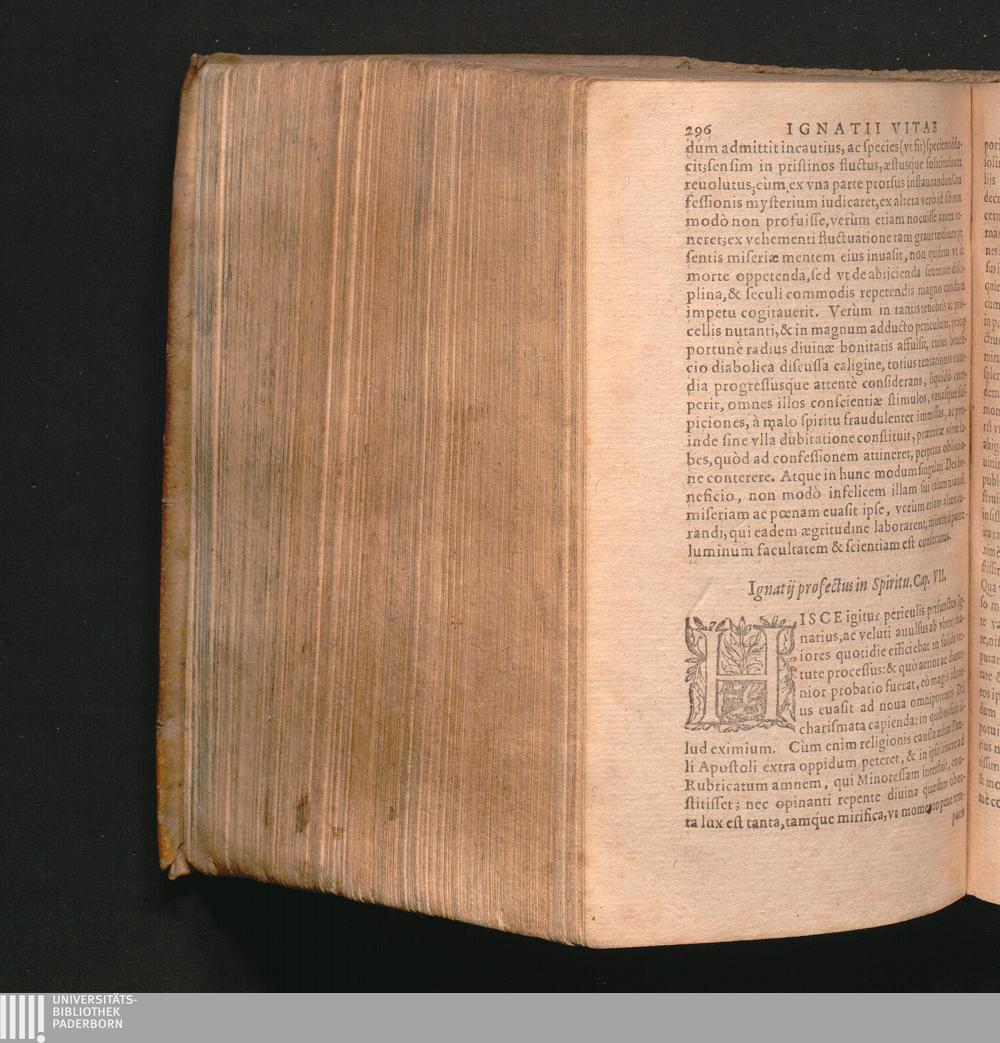 296 IGNATII VITAE
dum admittit incautius, ac species (vt fit) speciem addu-
cit; sensim in pristinos fluctus, æstusque solicitudinum
reuolutus; cùm ex vna parte prorsus instaurandum Con
fessionis mysterium iudicaret, ex altera verò id sibi non
modò non profuisse, verùm etiam nocuisse antea
neret; ex vehementi fluctuatione tam graue tædium
sentis miseriæ mentem eius inuasit, non quidem vt de
morte oppetenda, sed vt de abijcienda seueriore disci-
plina, & seculi commodis repetendis magno quodam
impetu cogitauerit. Verùm in tantis tenebris ac pro-
cellis nutanti, & in magnum adducto periculum, perop
portunè radius diuinæ bonitatis affulsit, cuius benefi-
cio diabolica discussa caligine, totius tentationis exor-
dia progressusque attentè considerans, liquidò com-
perit, omnes illos conscientiæ stimulos, vanasque sus-
piciones, à malo spiritu fraudulenter immissas, ac pro-
inde sine vlla dubitatione constituit, præteritæ vitæ la-
bes, quòd ad confessionem attineret, perpetua obliuio-
ne conterere. Atque in hunc modum singulari Dei be-
neficio, non modò infelicem illam sui calumniandi
miseriam ac pœnam euasit ipse, verùm etiam alios cu-
randi, qui eadem ægritudine laborarent, miram à patre
luminum facultatem & scientiam est consecutus.
Ignatij profectus in Spiritu. Cap. VII.
HISCE igitur periculis perfunctus Ig-
natius, ac veluti auulsus ab vbere, ma-
iores quotidie efficiebat in solida vir-
tute processus: & quò acrior ac diutur-
nior probatio fuerat, eò magis idone-
us euasit ad noua omnipotentis Dei
charismata capienda: in quibus fuit il-
lud eximium. Cùm enim religionis caussa ædem Pau-
li Apostoli extra oppidum peteret, & in ipso itinere ad
Rubricatum amnem, qui Minoressam interfluit, con-
stitisset; nec opinanti repente diuina quædam obor-
ta lux est tanta, tamque mirifica, vt momento pene tem-
UNIVERSITÄTS-
BIBLIOTHEK
PADERBORN